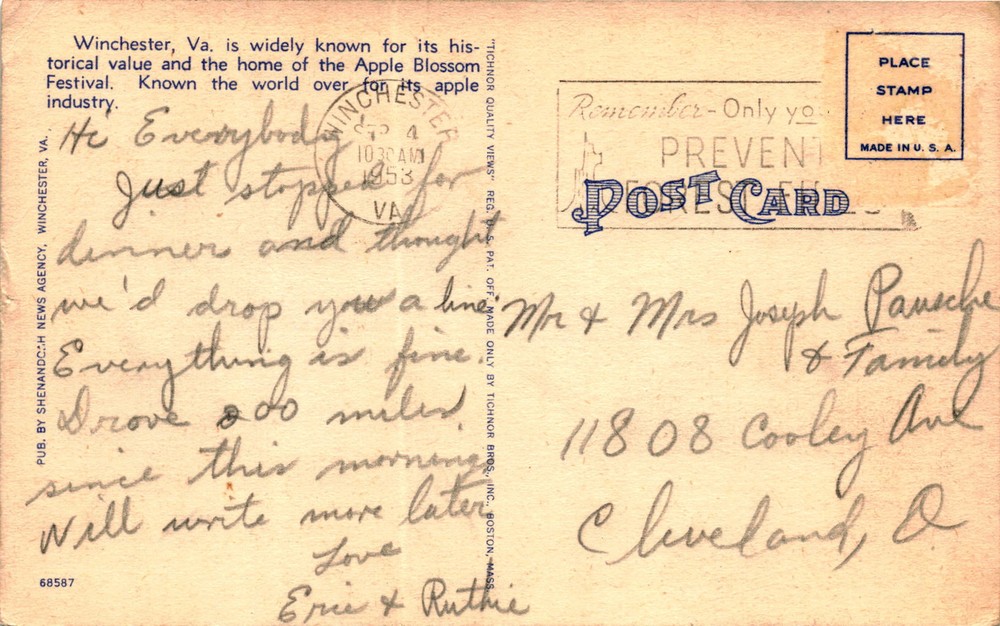 Winchester, Va. is widely known for its his-
torical value and the home of the Apple Blossom
Festival. Known the world over for its apple
industry.
Hi Everybody
Just stopped for
dinner and thought
we'd drop you a line.
Everything is fine.
Drove 200 miles
since this morning
Will write more later
Love
Eric & Ruthie
68587
PUB. BY SHENANDOAH NEWS AGENCY, WINCHESTER, VA.
"TICHNOR QUALITY VIEWS" REG. U. S. PAT. OFF. MADE ONLY BY TICHNOR BROS., INC., BOSTON, MASS.
WINCHESTER
SEP 4
10 30 AM
1953
VA.
Remember - Only you
PREVENT
FOREST
POST CARD
PLACE
STAMP
HERE
MADE IN U. S. A.
Mr & Mrs Joseph Pausche
& Family
11808 Cooley Ave
Cleveland, O